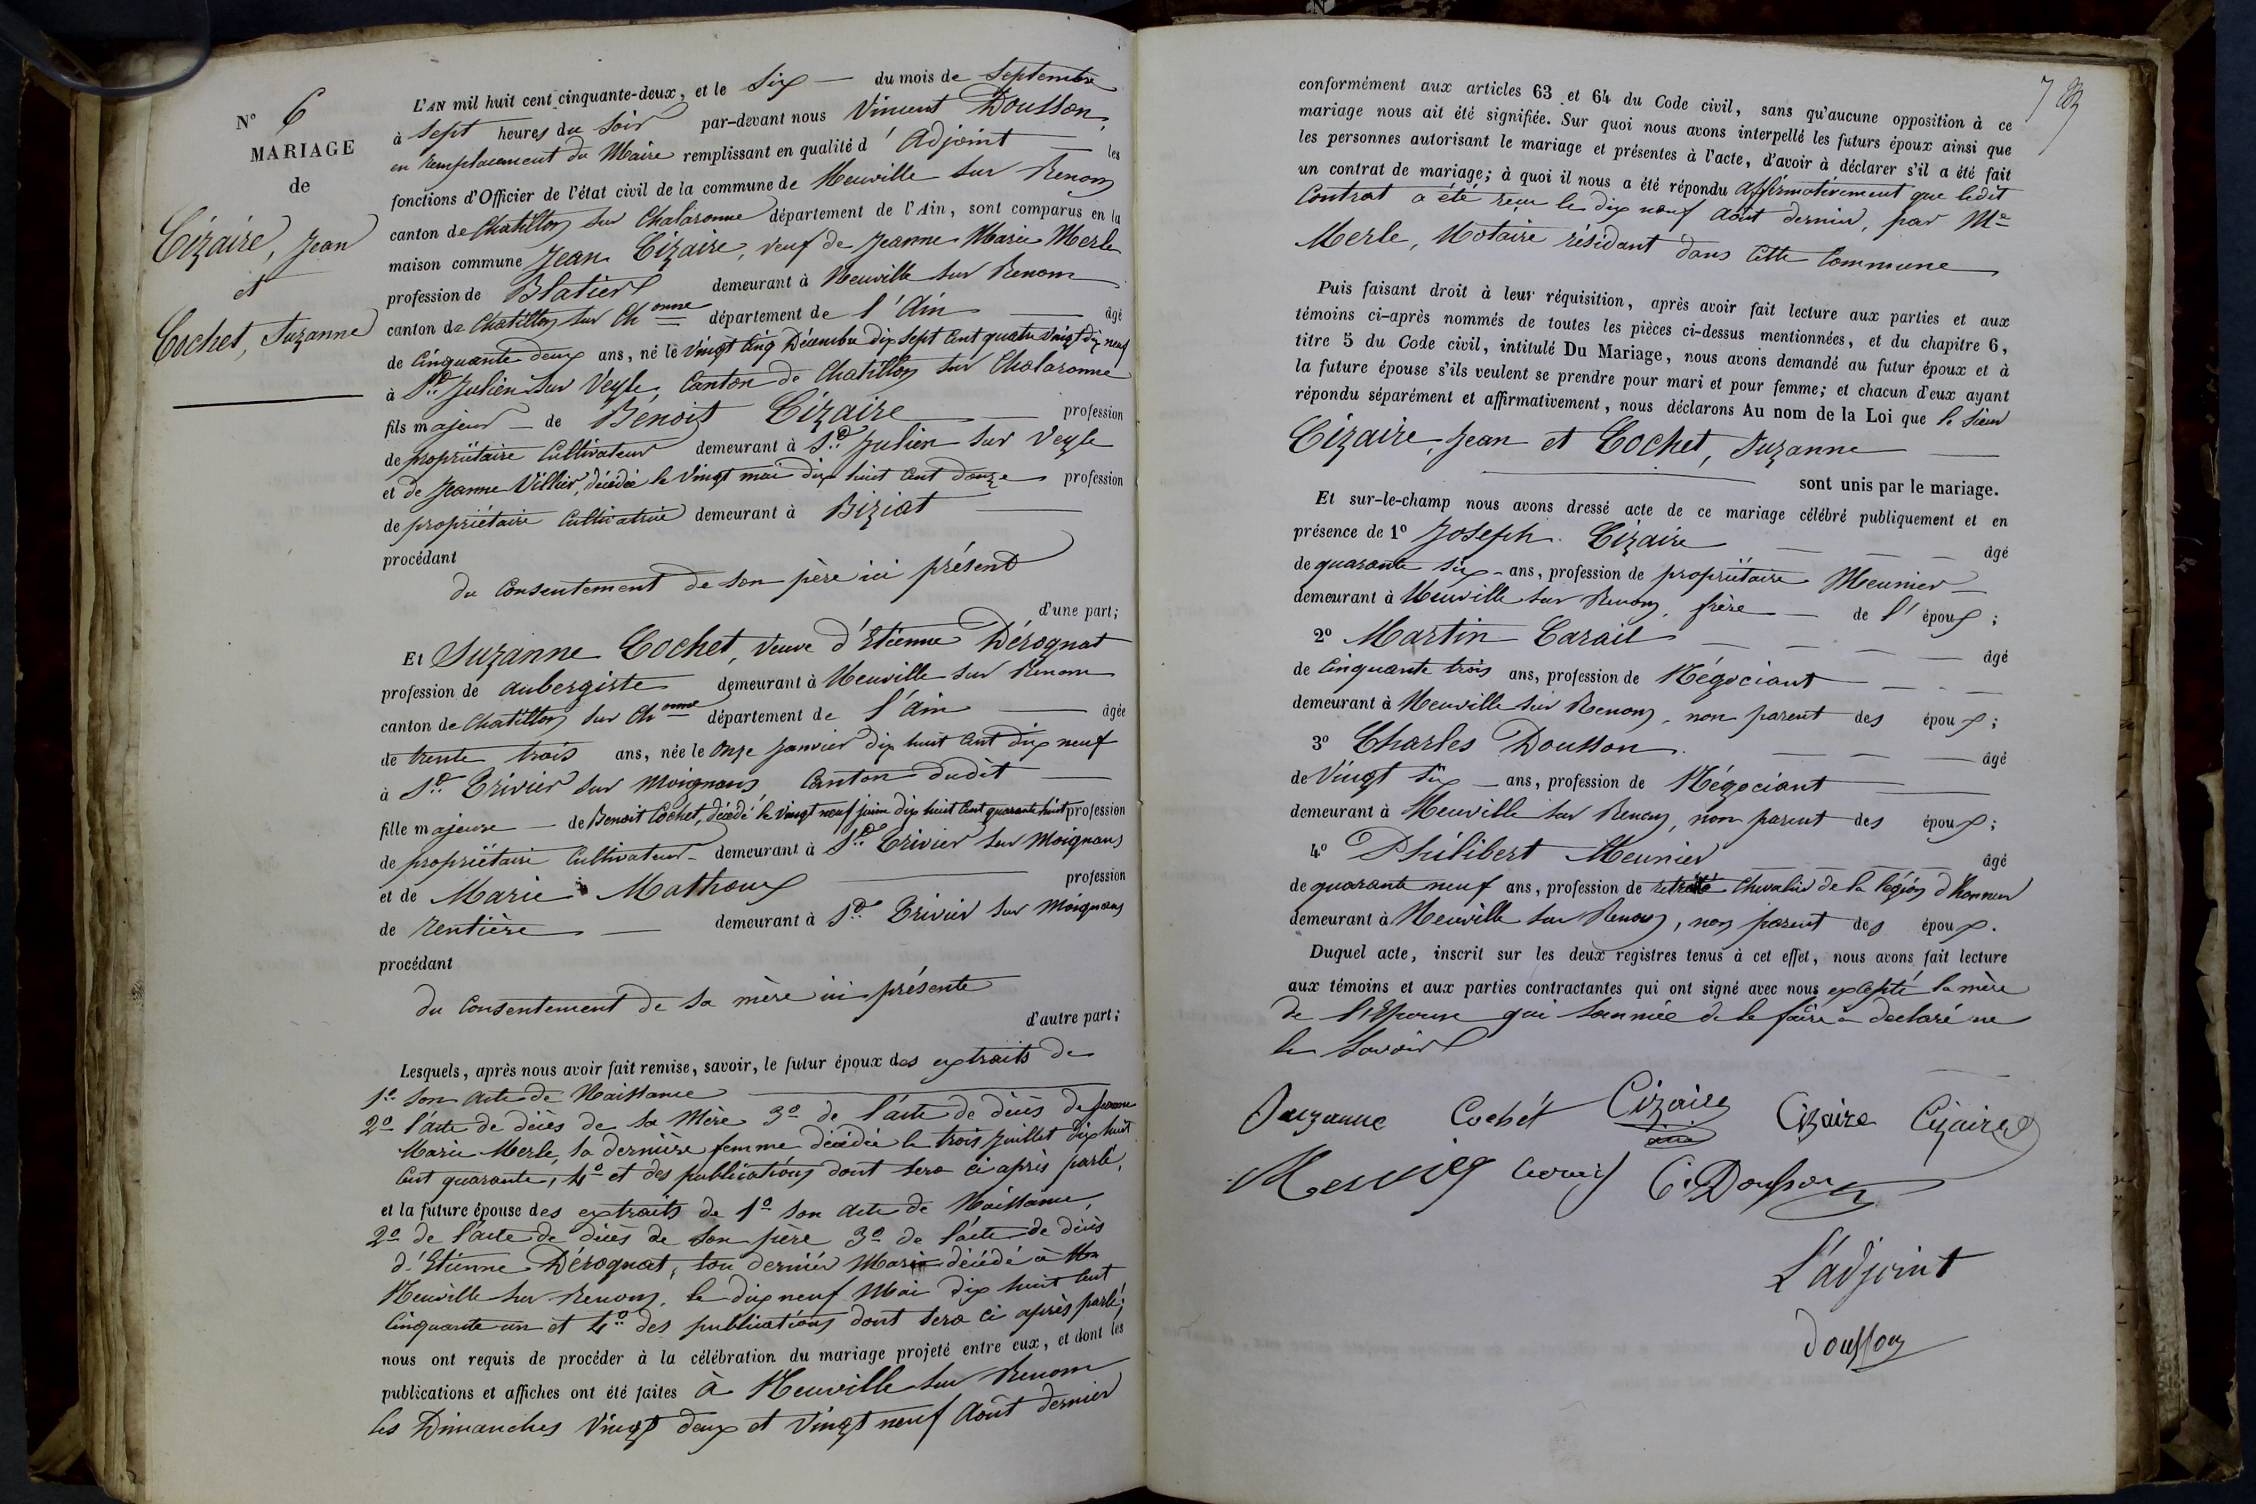 N° 6
MARIAGE
de
Cizaire, Jean
et
Cochet, Suzanne
L'AN mil huit cent cinquante-deux, et le Six — du mois de Septembre
à Sept heures du Soir par-devant nous Vincent Dousson,
en remplacement du Maire remplissant en qualité d'Adjoint — les
fonctions d'Officier de l'état civil de la commune de Neuville sur Renom
canton de Chatillon sur Chalaronne département de l'Ain, sont comparus en la
maison commune Jean Cizaire, veuf de Jeanne Marie Merle
profession de Blatier demeurant à Neuville sur Renom
canton de Chatillon sur Chonne département de l'Ain — âgé
de Cinquante deux ans, né le Vingt Cinq Décembre dix Sept Cent quatre Vingt dix neuf
à St. Julien sur Veyle, Canton de Chatillon sur Chalaronne
fils majeur — de Bénoit Cizaire — profession
de propriétaire Cultivateur demeurant à St. Julien sur Veyle
et de Jeanne Villier, décédée le Vingt mai dix huit Cent douze profession
de propriétaire Cultivatrice demeurant à Biziat —
procédant
du Consentement de son père ici présent
d'une part;
Et Suzanne Cochet, Veuve d'Etienne Dérognat
profession de aubergiste demeurant à Neuville sur Renom
canton de Chatillon sur Chonne département de l'ain — âgée
de trente trois ans, née le Onze Janvier dix huit Cent dix neuf
à St. Trivier sur Moignans Canton dudit —
fille majeure — de Benoit Cochet, décédé le Vingt neuf juin dix huit Cent quarante huit profession
de propriétaire Cultivateur — demeurant à St. Trivier sur Moignans
et de Marie Mathoux — profession
de rentière — demeurant à St. Trivier sur Moignans
procédant
du Consentement de sa mère ici présente
d'autre part;
Lesquels, après nous avoir fait remise, savoir, le futur époux des extraits de
1° son acte de Naissance —
2° l'acte de décès de sa Mère 3° de l'acte de décès de Jeanne
Marie Merle, sa dernière femme décédée le trois Juillet dix huit
Cent quarante, 4° et des publications dont sera ci après parlé,
et la future épouse des extraits de 1° son acte de Naissance,
2° de l'acte de décès de son père 3° de l'acte de décès
d'Etienne Dérognat, son dernier Mari décédé à
Neuville sur Renom, le dix neuf Mai dix huit Cent
Cinquante un et 4° des publications dont sera ci après parlé;
nous ont requis de procéder à la célébration du mariage projeté entre eux, et dont les
publications et affiches ont été faites à Neuville sur Renom
les Dimanches Vingt deux et Vingt neuf Août dernier
7
conformément aux articles 63 et 64 du Code civil, sans qu'aucune opposition à ce
mariage nous ait été signifiée. Sur quoi nous avons interpellé les futurs époux ainsi que
les personnes autorisant le mariage et présentes à l'acte, d'avoir à déclarer s'il a été fait
un contrat de mariage; à quoi il nous a été répondu affirmativement que ledit
Contrat a été reçu le dix neuf Août dernier, par Me
Merle, Notaire résidant dans cette Commune
Puis faisant droit à leur réquisition, après avoir fait lecture aux parties et aux
témoins ci-après nommés de toutes les pièces ci-dessus mentionnées, et du chapitre 6,
titre 5 du Code civil, intitulé Du Mariage, nous avons demandé au futur époux et à
la future épouse s'ils veulent se prendre pour mari et pour femme; et chacun d'eux ayant
répondu séparément et affirmativement, nous déclarons Au nom de la Loi que le Sieur
Cizaire, Jean et Cochet, Suzanne —
sont unis par le mariage.
Et sur-le-champ nous avons dressé acte de ce mariage célébré publiquement et en
présence de 1° Joseph Cizaire — âgé
de quarante six — ans, profession de propriétaire Meunier —
demeurant à Neuville sur Renom, frère — de l'époux;
2° Martin Carail — âgé
de Cinquante trois ans, profession de Négociant —
demeurant à Neuville sur Renom, non parent des époux;
3° Charles Dousson — âgé
de Vingt Six — ans, profession de Négociant —
demeurant à Neuville sur Renom, non parent des époux;
4° Philibert Meunier — âgé
de quarante neuf ans, profession de retraité Chevalier de la légion d'honneur
demeurant à Neuville sur Renom, non parent des époux.
Duquel acte, inscrit sur les deux registres tenus à cet effet, nous avons fait lecture
aux témoins et aux parties contractantes qui ont signé avec nous excepté la mère
de l'Epouse qui Sommée de le faire a déclaré ne
le Savoir
Suzanne Cochét Cizaire Cizaire Cizaire
C. Dousson
L'adjoint
Dousson